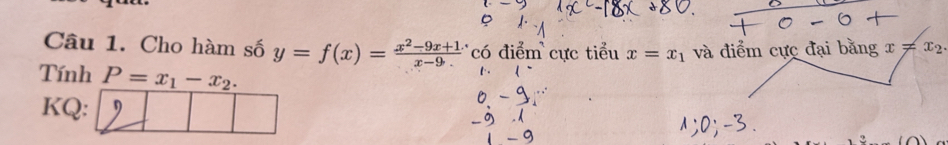 1x²-18x+80.
+ 0 - 0 +
Câu 1. Cho hàm số y = f(x) = \frac{x²-9x+1}{x-9} có điểm cực tiểu x = x₁ và điểm cực đại bằng x = x₂.
Tính P = x₁ − x₂.
KQ: 2
1. 1
0. -9
-9 .1
1 -9
1;0;-3.